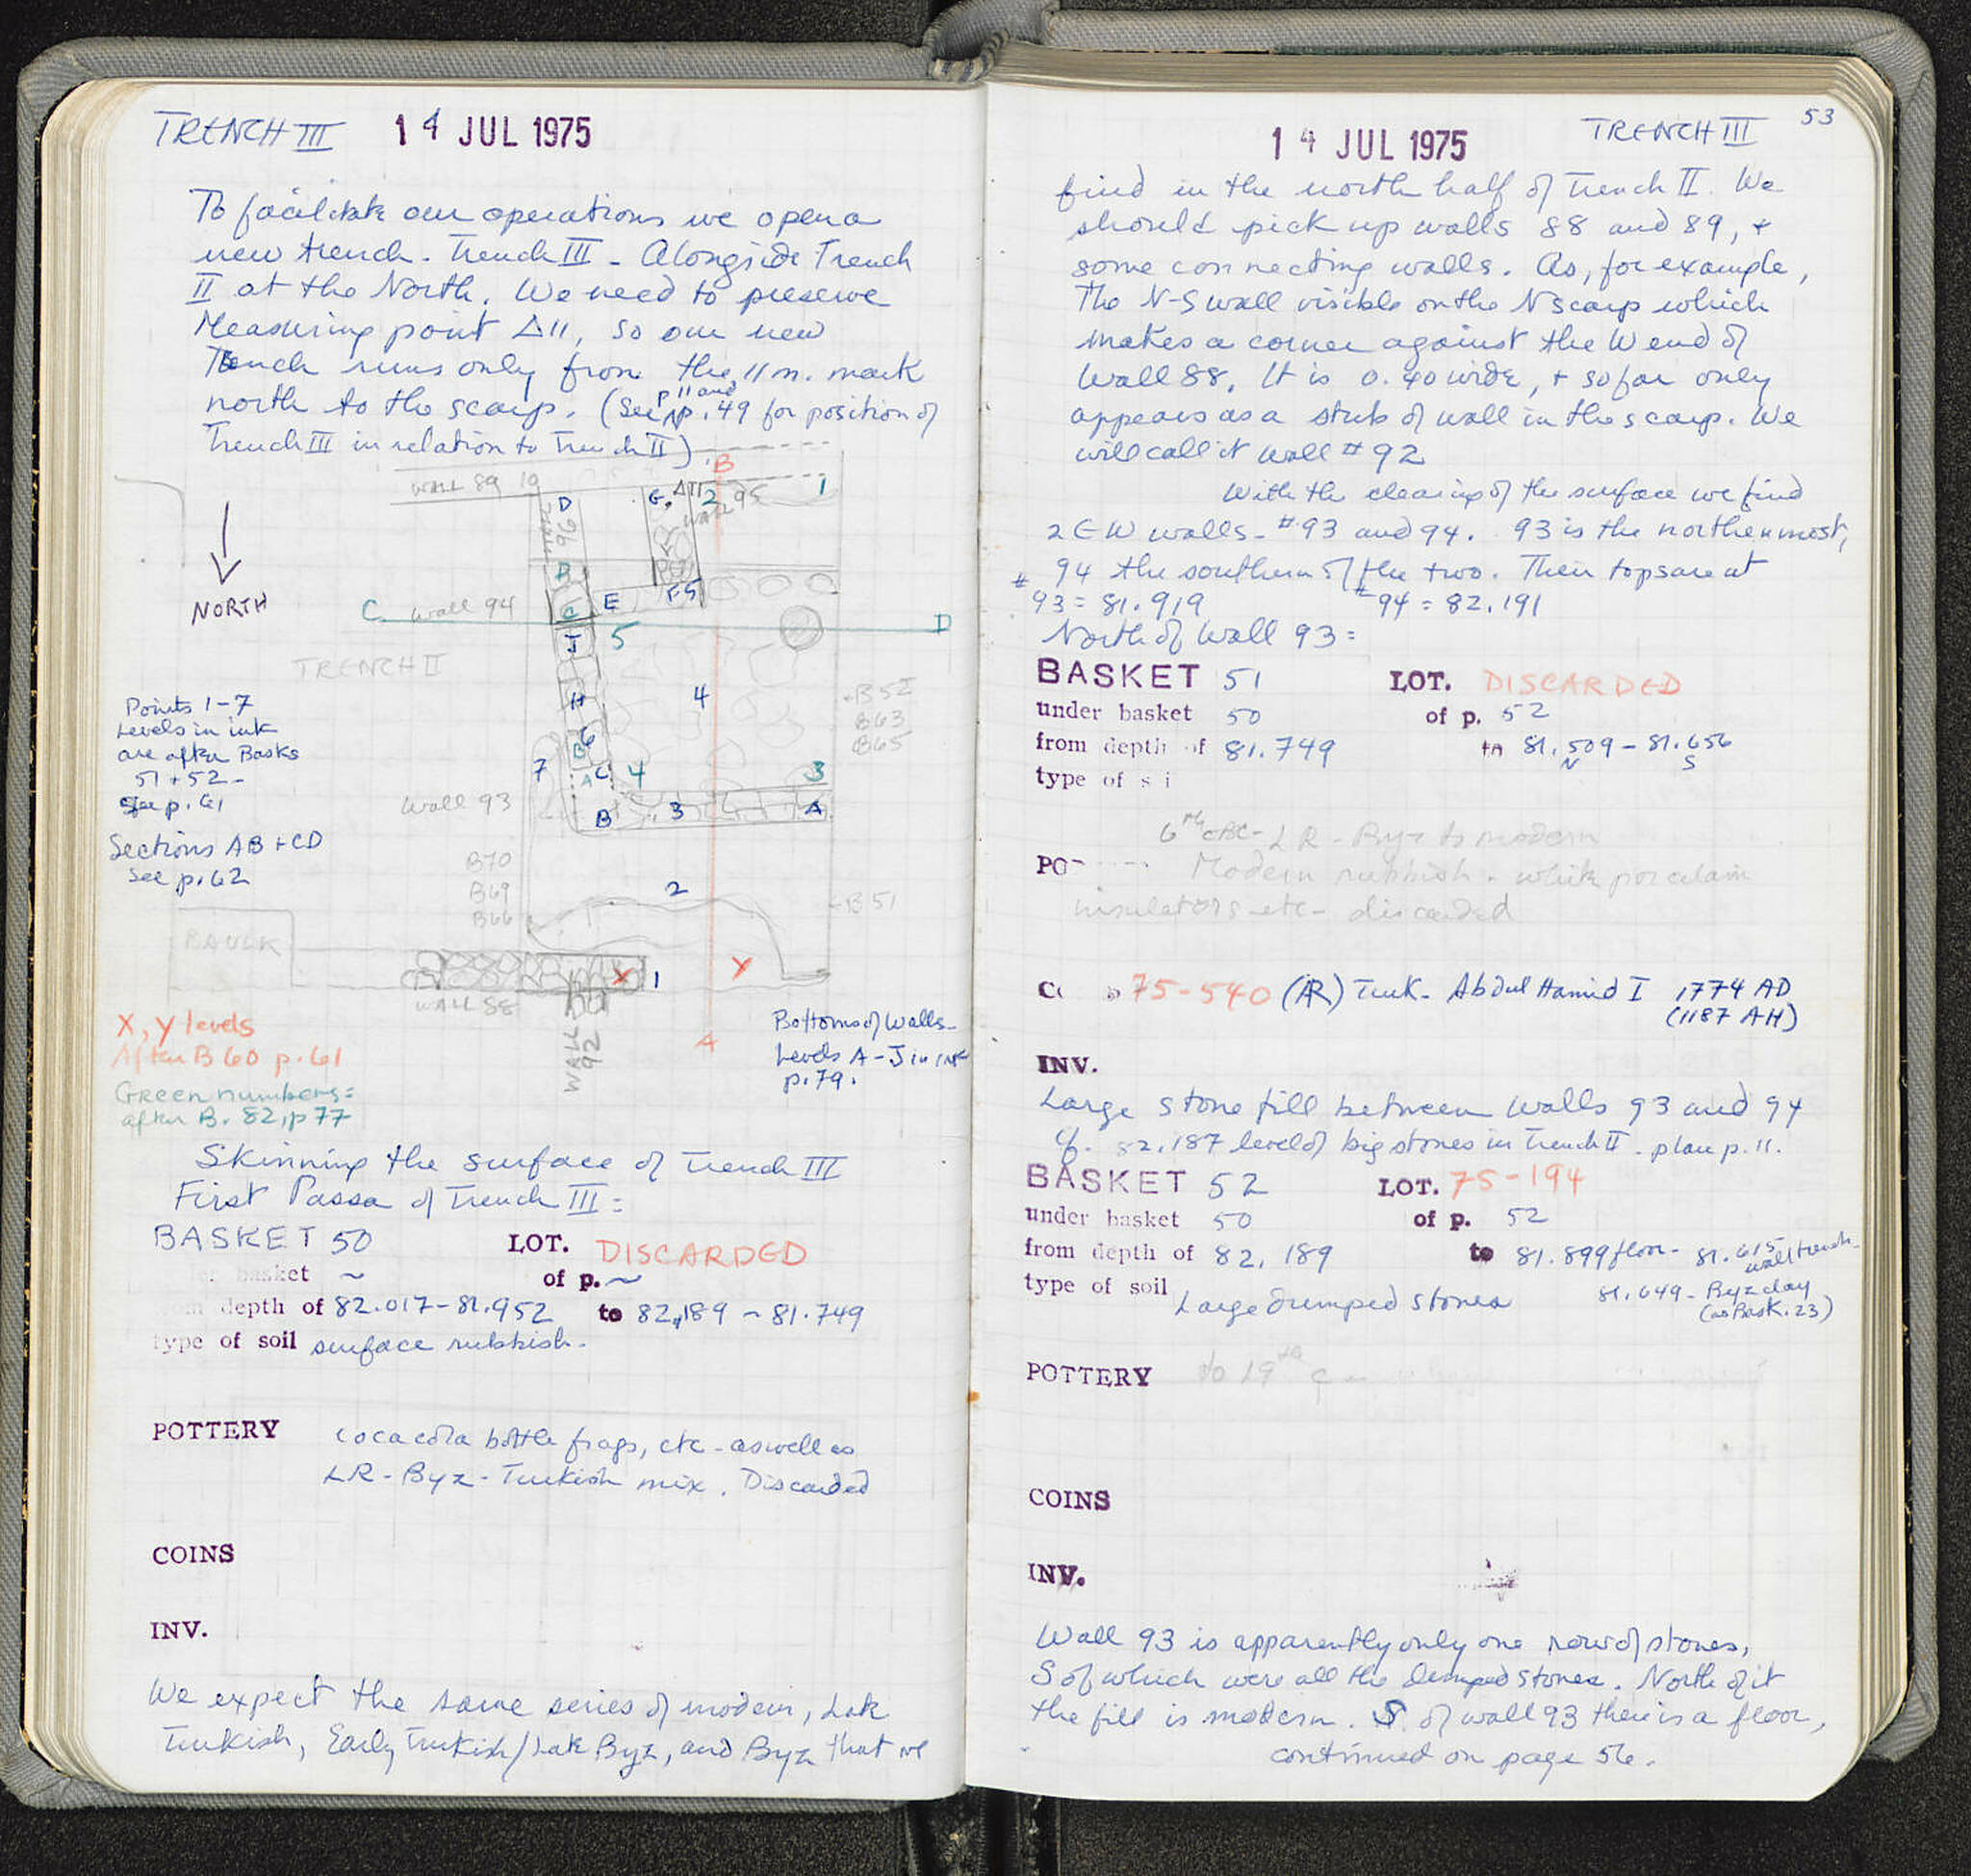 TRENCH III 14 JUL 1975
To facilitate our operations we open a
new trench - Trench III - Alongside Trench
II at the North. We need to preserve
Measuring point Δ11, so our new
Trench runs only from the 11 m. mark
north to the scarp. (See p 11 and p. 49 for position of
Trench III in relation to Trench II).
B
WALL 89
D
G.
Δ11
2
WALL 95
1
96
D
NORTH
C
Wall 94
C
E
F
5
D
J
5
TRENCH II
H
4
B52
B63
B65
Points 1-7
Levels in ink
are after Basks
51 + 52 -
See p. 61
6
B
7
A
C
4
3
Wall 93
B
3
A
Sections AB + CD
See p. 62
B70
B69
B66
2
B51
BAULK
X
1
Y
WALL 88
WALL 92
A
X, Y levels
After B 60 p. 61
Green numbers =
after B. 82, p 77
Bottoms of Walls -
Levels A - J in ink
p. 79.
Skinning the surface of Trench III
First Passa of Trench III =
BASKET 50 LOT. DISCARDED
basket ~ of p. ~
depth of 82.017 - 81.952 to 82.189 - 81.749
type of soil surface rubbish.
POTTERY coca cola bottle frags, etc - as well as
LR - Byz - Turkish mix. Discarded
COINS
INV.
We expect the same series of modern, Late
Turkish, Early Turkish/Late Byz, and Byz that we
53
14 JUL 1975 TRENCH III
find in the north half of Trench II. We
should pick up walls 88 and 89, +
some connecting walls. As, for example,
The N-S wall visible on the N scarp which
makes a corner against the W end of
Wall 88. It is 0.40 wide, + so far only
appears as a stub of wall in the scarp. We
will call it Wall # 92
With the clearing of the surface we find
2 E W walls - # 93 and 94. 93 is the northernmost,
94 the southern of the two. Their tops are at
# 93 = 81.919 # 94 = 82.191
North of Wall 93 =
BASKET 51 LOT. DISCARDED
under basket 50 of p. 52
from depth of 81.749 to 81.509 - 81.656
N S
type of s i
6th c BC - LR - Byz to modern
PO Modern rubbish - white porcelain
insulators etc - discarded
75-540 (AR) Turk - Abdul Hamid I 1774 AD
(1187 AH)
INV.
Large stone fill between Walls 93 and 94
cf. 82.187 level of big stones in Trench II - plan p. 11.
BASKET 52 LOT. 75-194
under basket 50 of p. 52
from depth of 82.189 to 81.899 floor - 81.615 wall trench
type of soil Large dumped stones 81.649 - Byz clay
(as Bask. 23)
POTTERY to 19th c
COINS
INV.
Wall 93 is apparently only one row of stones,
S of which were all the dumped stones. North of it
the fill is modern. S of wall 93 there is a floor,
continued on page 56.